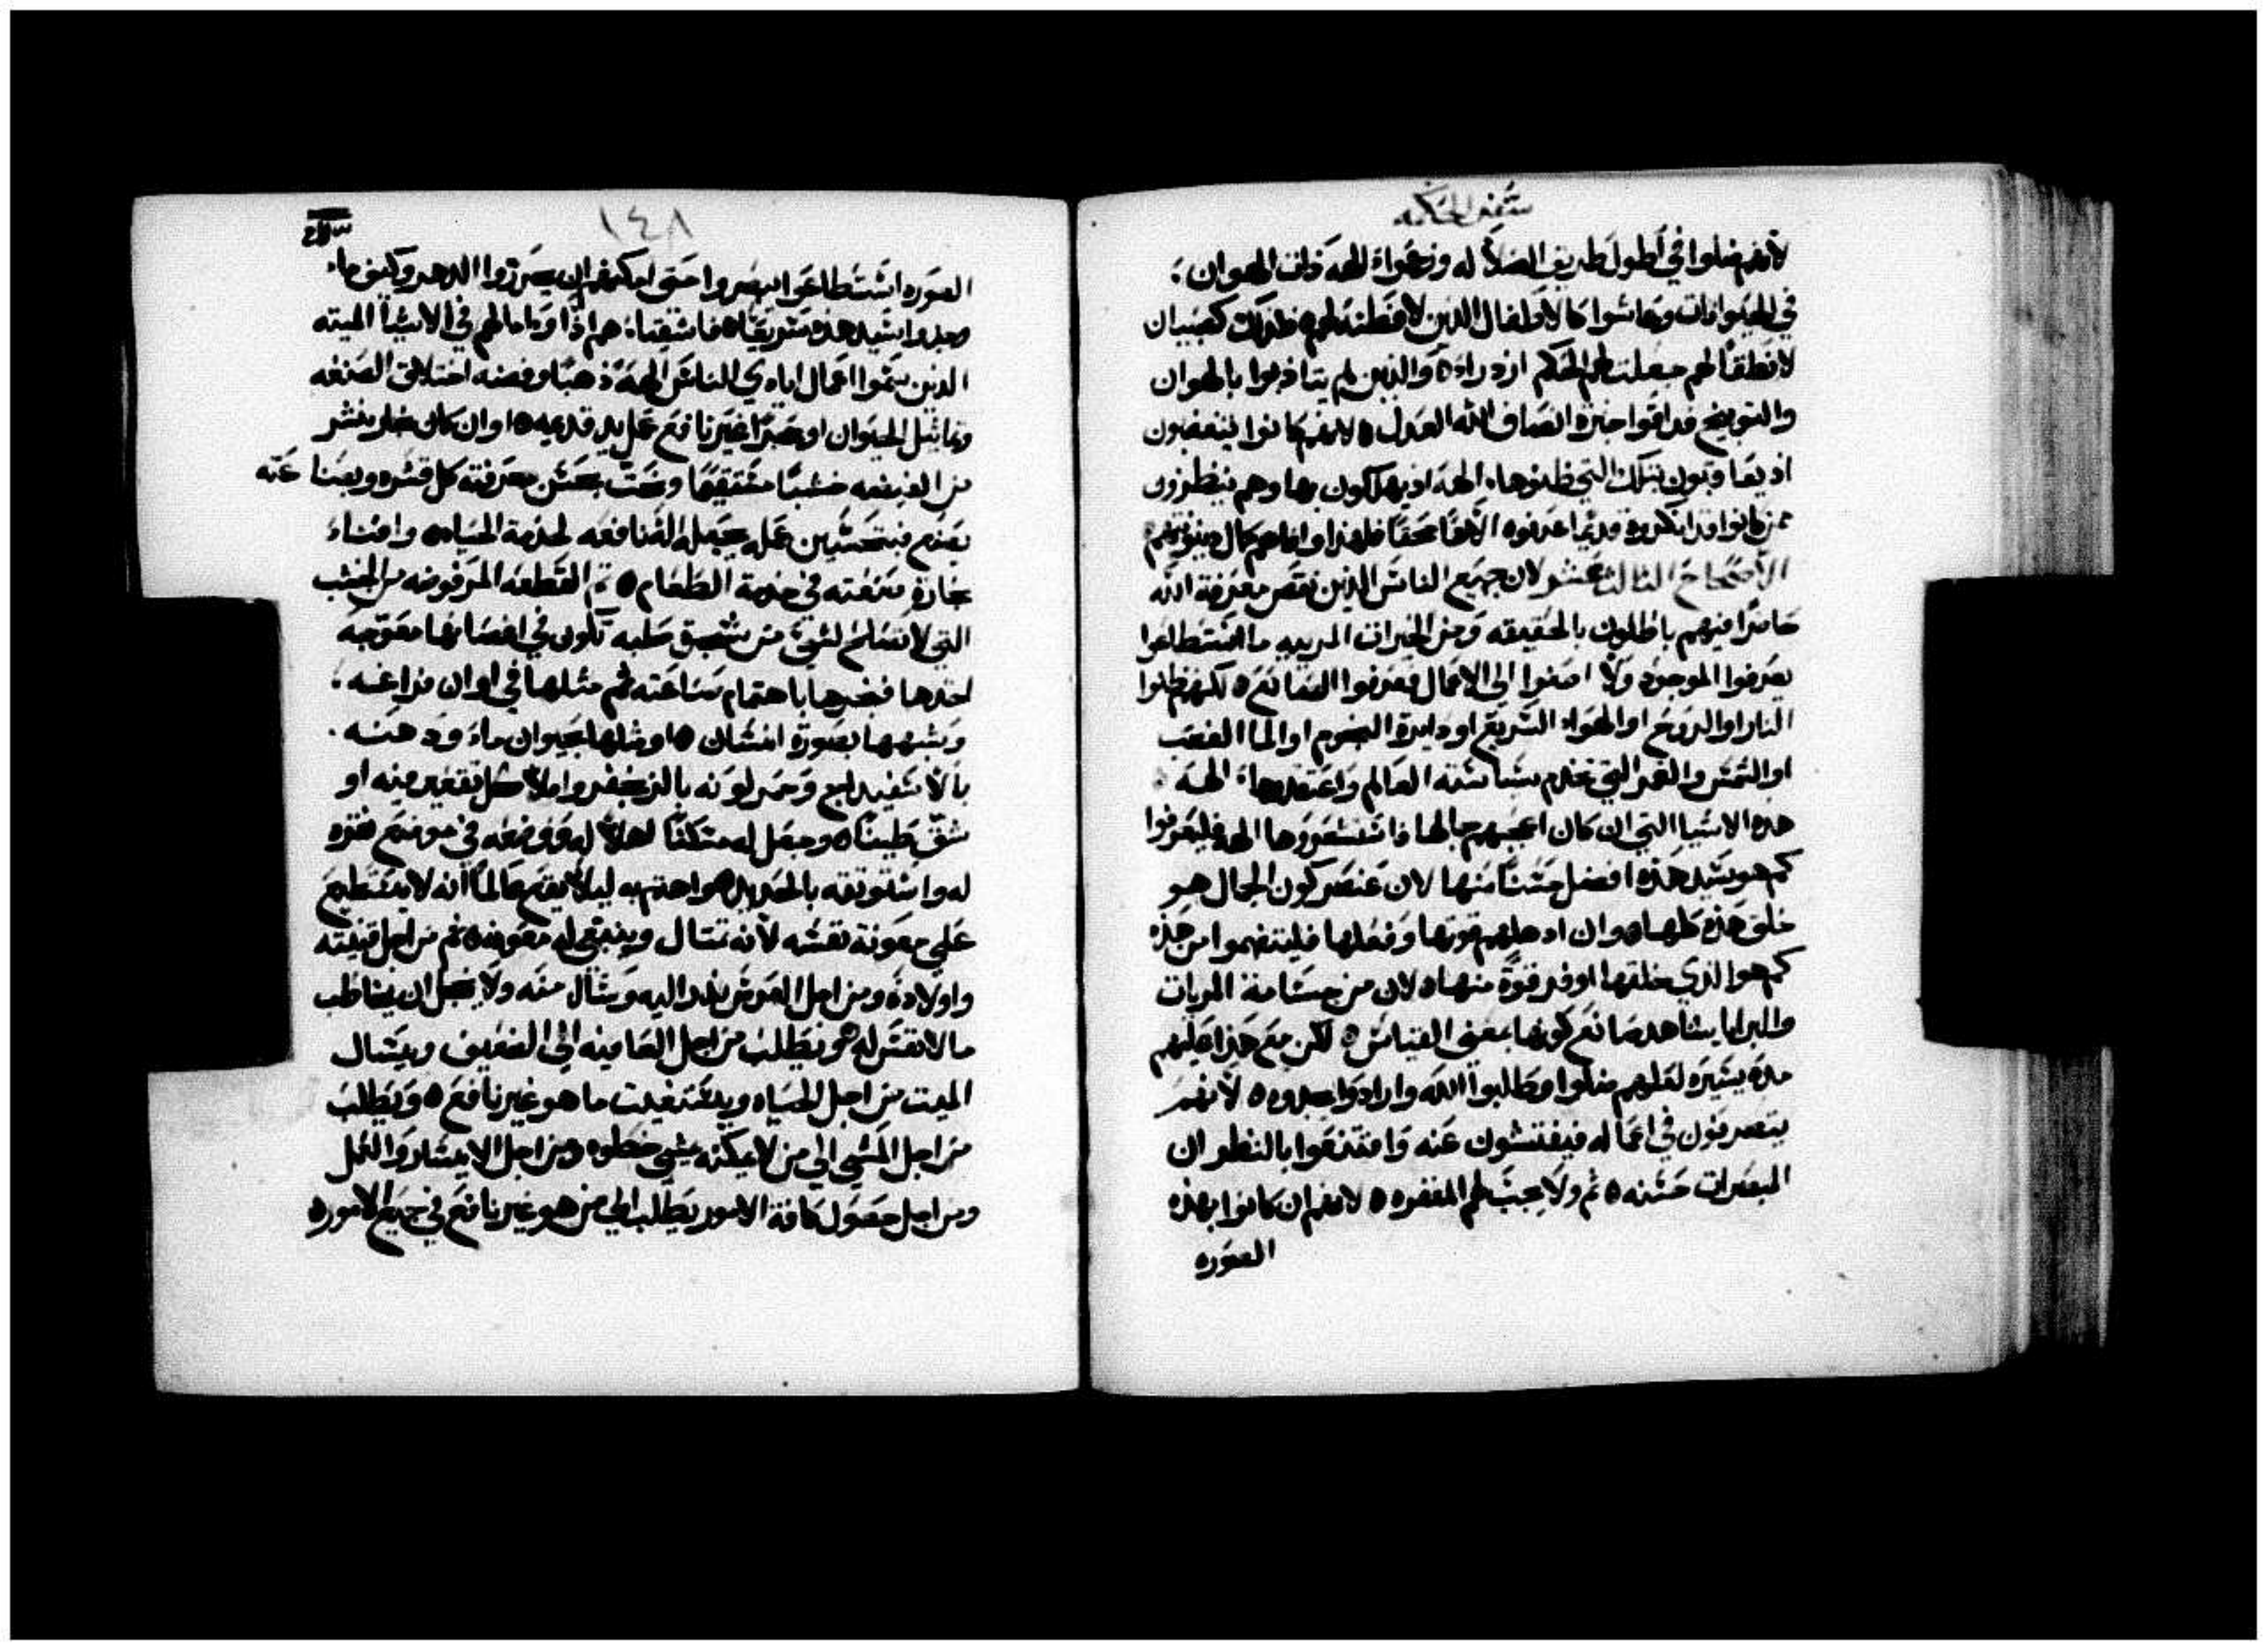 سفر الحكمه
لانهم ضلوا في اطول طريق الضلاله وزعموا الهة ذلك الهوان
في الحيوانات وعاشوا كالاطفال الذين لا فطنة لهم فلذلك كصبيان
لا نطقا لهم جعلت لهم الحكم ازدراء ٥ والذين لم يتادبوا بالهوان
والتوبيخ ذاقوا خبزة انصاف الله العدل ٥ لانهم كانوا يتغصبون
اذ يضا قبون بتلك التي ظنوها الهة اذ يهلكون بها وهم ينظرون
كانوا قد انكروه قديما عرفوه الاها محقا فلهذا وافاهم كمال دينونتهم
الاصحاح الثالث عشر لان جميع الناس الذين نقص معرفة الله
حاضرا فيهم باطلون بالحقيقه ومن الخيرات المرييه ما استطاعوا
يعرفوا الموجود ولا اصغوا الى الاعمال فعرفوا الصانع ٥ لكنهم ظنوا
النار او الروح او الهواء السريع او دايرة النجوم او الما الغصب
او الشمس والقمر التي تخدم سياسة العالم واعتقدوها الهه
هذه الاشيا التي ان كان اعجبهم جمالها فاستشعروها الهة فليعرفوا
كم هو سيد هذه افضل حسنا منها لان عنصر كون الجمال هو
خلق هذه كلها ٥ وان ادهلهم قوتها وفعلها فليتفهموا من هذه
كم هو الذي خلقها اوفر قوة منها ٥ لان من جسامة المريات
والبرايا يشاهد صانع كونها بمعنى القياس ٥ لكن مع هذا عليهم
مدة يسيره لعلهم ضلوا وطلبوا الله وارادوا يجدوه ٥ لانهم
يتصرفون في اعماله فيفتشون عنه وامتنعوا بالنظر ان
المبصرات حسنه ٥ ثم ولا يجب لهم المغفره ٥ لانهم ان كانوا بهذه
الصوره
١٤٨
الصوره استطاعوا ليبصروا حتى امكنهم ان يحرزوا الدهر وكيف ما
وجدوا سيد هذه سريعا ٥ فاشقياء هم اذا وامالهم في الاشيا الميته
الذين سموا اعمال ايادي الناس الهة ذهبا وفضه اختلاق الصنعه
وتماثيل الحيوان او حجرا غير نافع عمل يد قديمه ٥ او ان كان نجار ينشر
من الغيضه خشبا مستقيما ونحت بحسن معرفته كل قشره وبعنا عنه
يصنع فبتحسين عمله يجعله الة نافعه لخدمة الحياه ٥ وافناء
نجارة صنعته في خدمة الطعام ٥ ثم القطعه المرفوضه من الخشب
التي لا تصلح لشي من شقوق صلبه تكون في اغصانها معوجه
اخدها فنجرها باهتمام بساعته ثم مثلها في اوان فراغه
وشبهها بصورة انسان ٥ او مثلها بحيوان ماء ودهنه
بالاسفيداج وحمر لونه بالزنجفر واملا كل تقعير فيه او
شق طينا ٥ وجعل له متكئا اهلا له ووضعه في موضع حفره
له واستوثقه بالحديد ٥ واحتم به ليلا يقع عالما انه لا يستطيع
على معونة نفسه لانه تمتال وينبغي له معونه ٥ ثم من اجل قنيته
واولاده ومن اجل العرس يندر اليه ويسال منه ولا يخجل ان يخاطب
ما لا نفس له ٥ ويطلب من اجل العافيه الى الضعيف ويسال
الميت من اجل الحياه ويستغيت ما هو غير نافع ٥ ويطلب
من اجل المشي الى من لا يمكنه يمشي خطوه ٥ ومن اجل الايسار والعمل
ومن اجل حصول كافة الامور يطلب الى من هو غير نافع في جميع الامور ٥